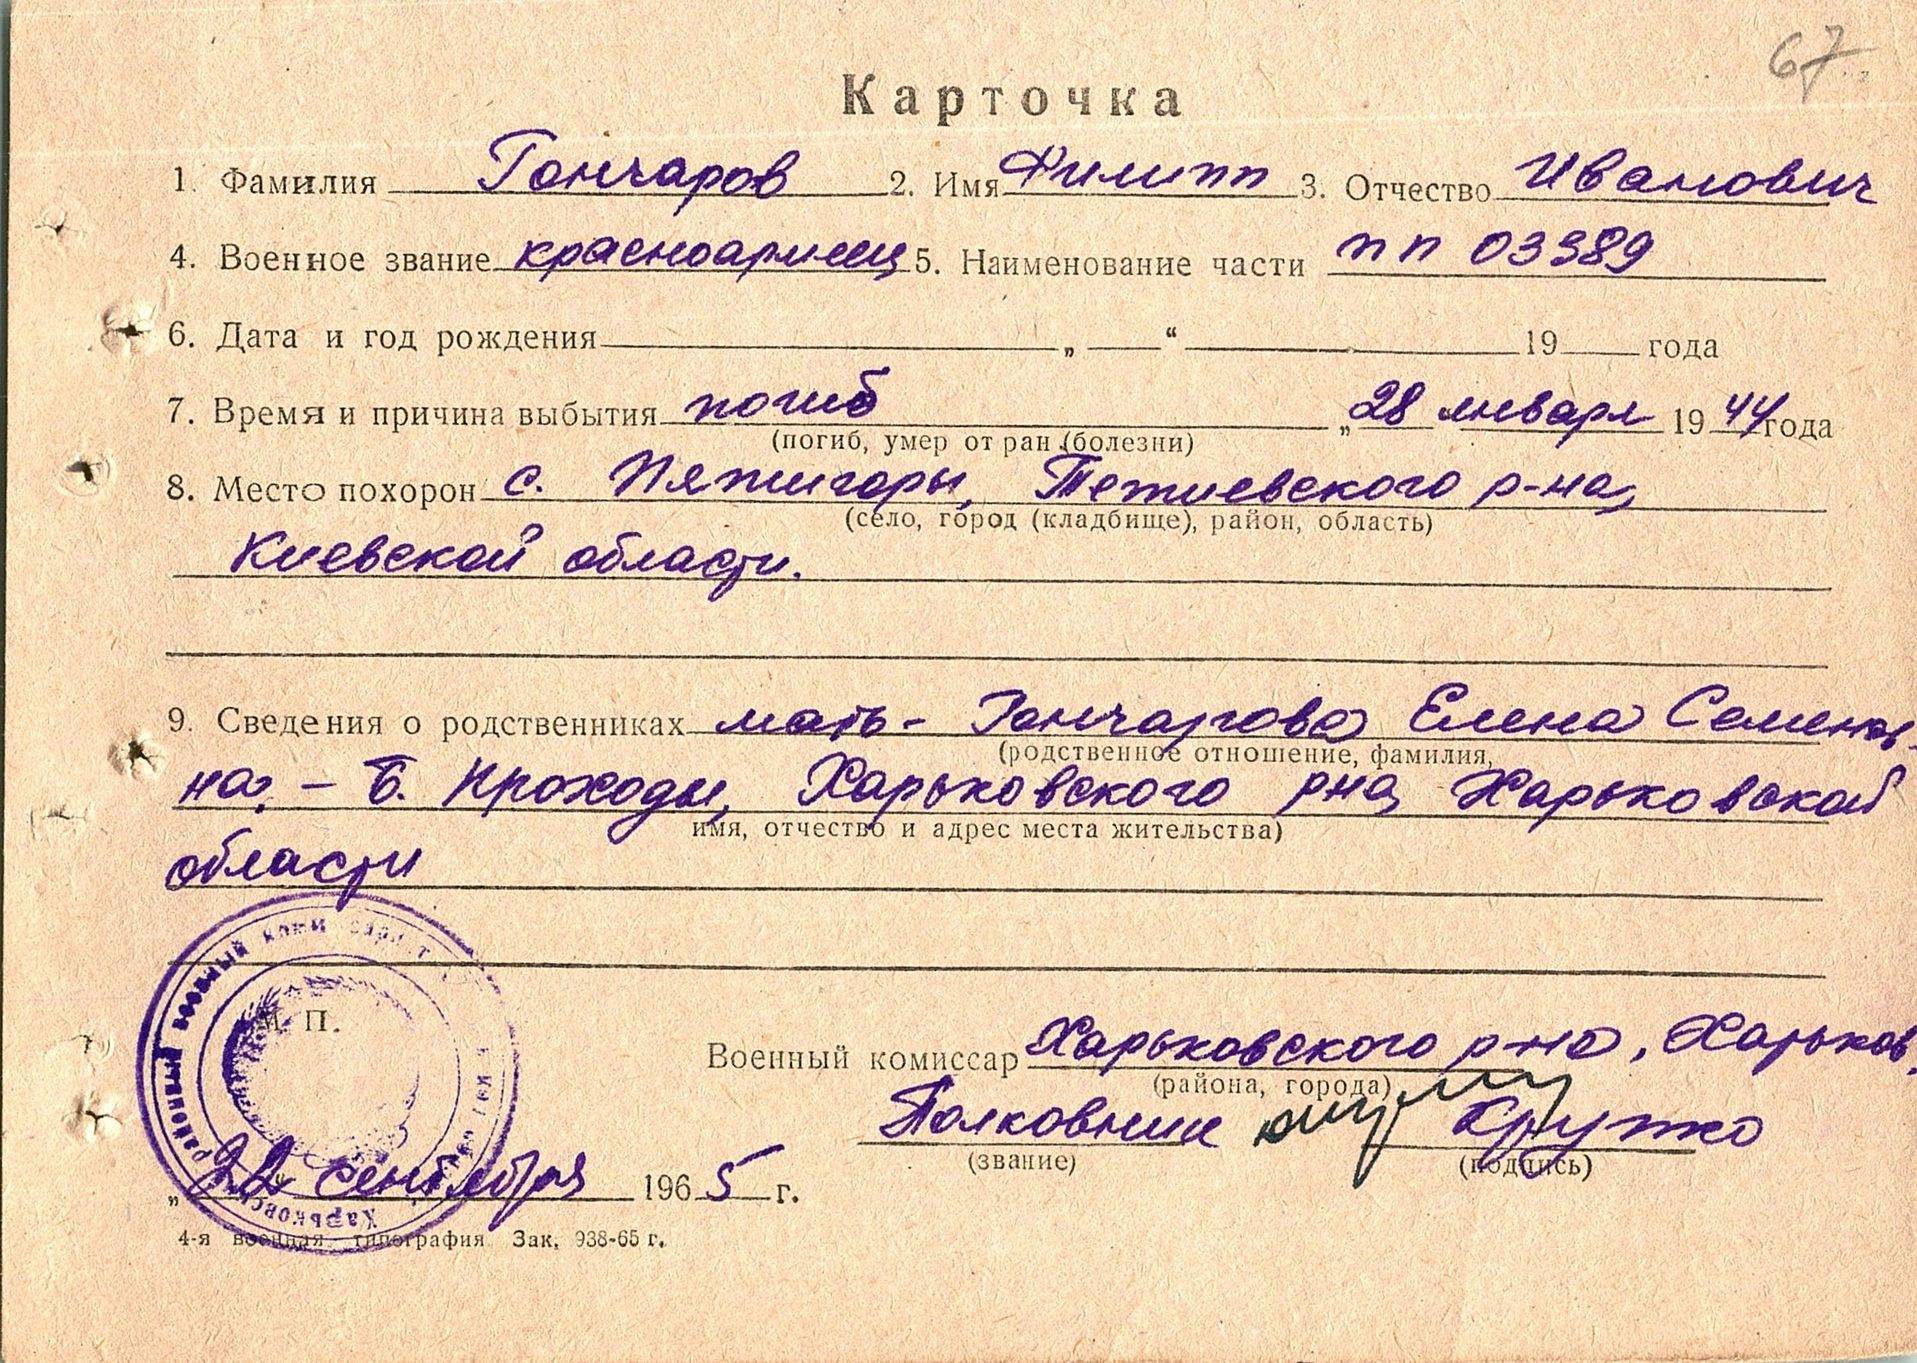 67
Карточка
1. Фамилия Гончаров 2. Имя Филипп 3. Отчество Иванович
4. Военное звание красноармеец 5. Наименование части пп 03389
6. Дата и год рождения „ “ 19 года
7. Время и причина выбытия погиб „28 января 1944 года
(погиб, умер от ран (болезни)
8. Место похорон с. Пятигоры, Тетиевского р-на,
(село, город (кладбище), район, область)
Киевской области.
9. Сведения о родственниках мать - Гончарова Елена Семенов-
(родственное отношение, фамилия,
на, - Б. Проходы, Харьковского рна, Харьковской
имя, отчество и адрес места жительства)
области
районный военный комиссариат
М. П.
Военный комиссар Харьковского р-на, Харьков.
(района, города)
Полковник Кружко
(звание) (подпись)
„22 сентября 1965 г.
4-я военная типография Зак. 938-65 г.